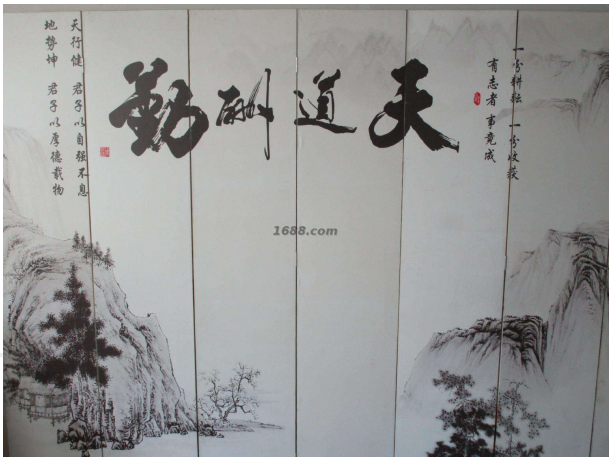 一份耕耘 一份收获
有志者 事竟成
天道酬勤
天行健 君子以自强不息
地势坤 君子以厚德载物
1688.com